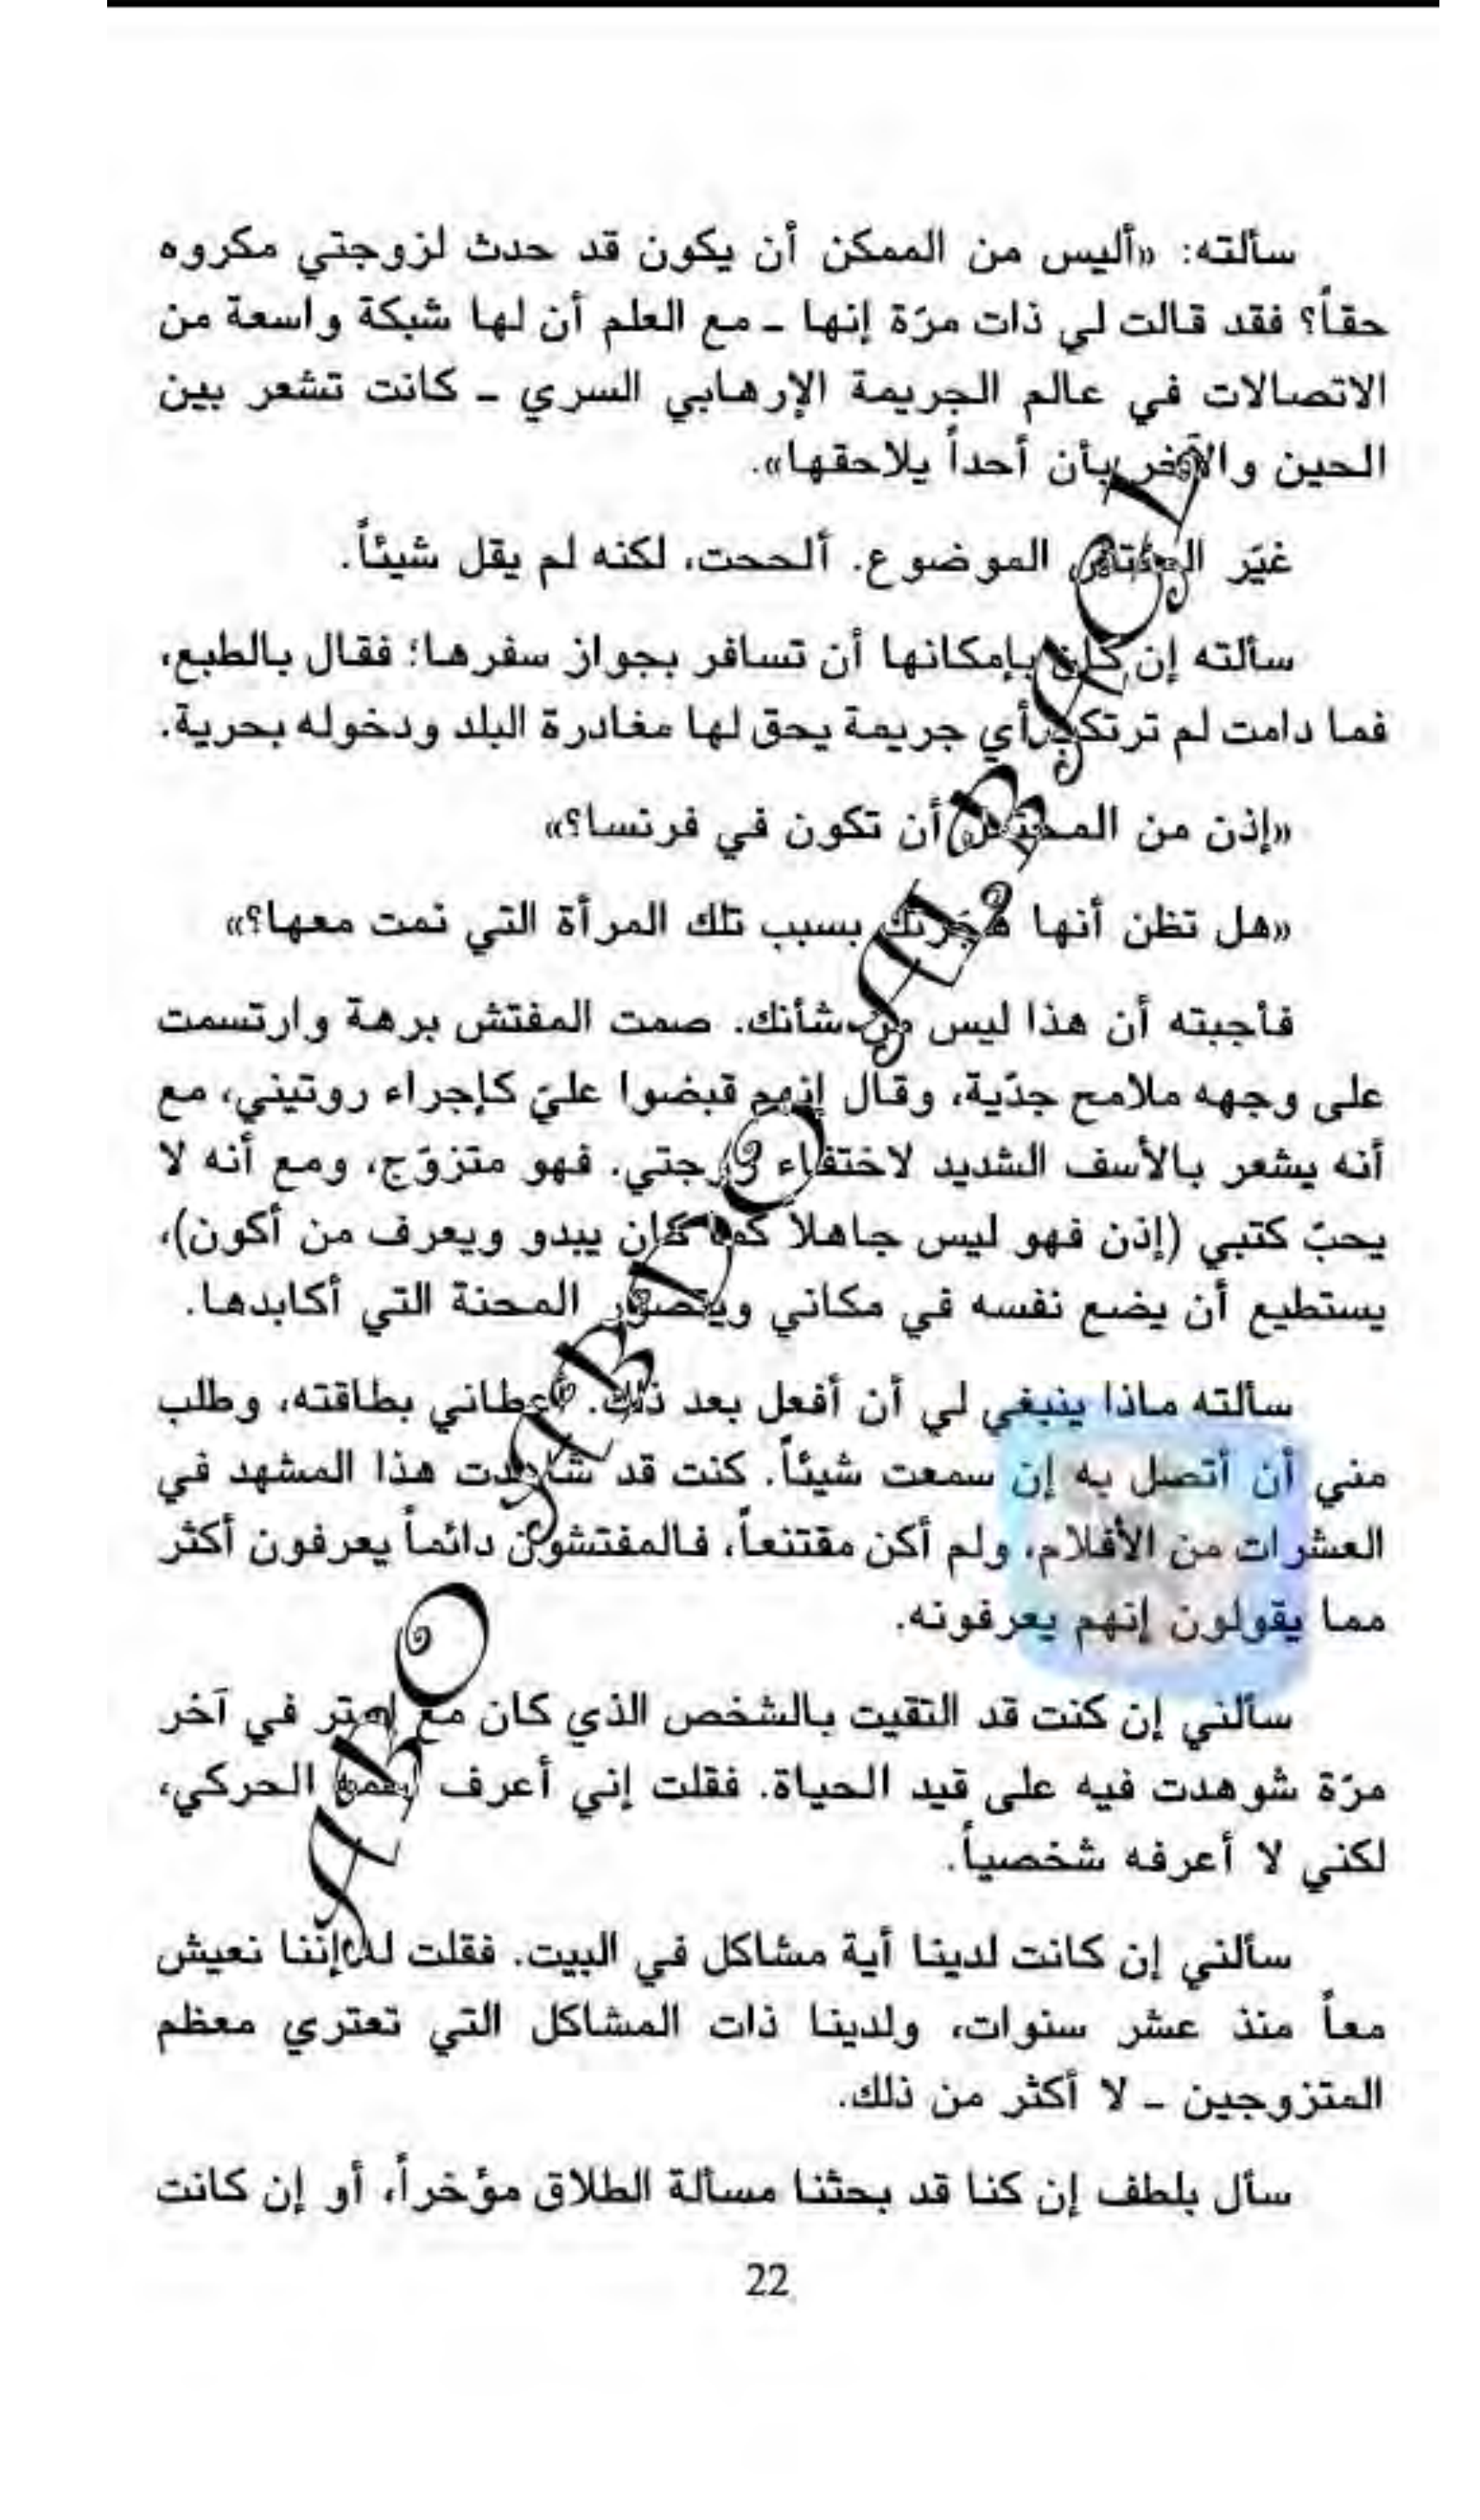 سألته: «أليس من الممكن أن يكون قد حدث لزوجتي مكروه
حقاً؟ فقد قالت لي ذات مرّة إنها ـ مع العلم أن لها شبكة واسعة من
الاتصالات في عالم الجريمة الإرهابي السري ـ كانت تشعر بين
الحين والآخر بأن أحداً يلاحقها».
غيّر المفتش الموضوع. ألححت، لكنه لم يقل شيئاً.
سألته إن كان بإمكانها أن تسافر بجواز سفرها؛ فقال بالطبع،
فما دامت لم ترتكب أي جريمة يحق لها مغادرة البلد ودخوله بحرية.
«إذن من المحتمل أن تكون في فرنسا؟»
«هل تظن أنها هجَرتك بسبب تلك المرأة التي نمت معها؟»
فأجبته أن هذا ليس من شأنك. صمت المفتش برهة وارتسمت
على وجهه ملامح جدّية، وقال إنهم قبضوا عليّ كإجراء روتيني، مع
أنه يشعر بالأسف الشديد لاختفاء زوجتي. فهو متزوّج، ومع أنه لا
يحبّ كتبي (إذن فهو ليس جاهلاً كما كان يبدو ويعرف من أكون)،
يستطيع أن يضع نفسه في مكاني ويتصوّر المحنة التي أكابدها.
سألته ماذا ينبغي لي أن أفعل بعد ذلك. أعطاني بطاقته، وطلب
مني أن أتصل به إن سمعت شيئاً. كنت قد شاهدت هذا المشهد في
العشرات من الأفلام، ولم أكن مقتنعاً، فالمفتشون دائماً يعرفون أكثر
مما يقولون إنهم يعرفونه.
سألني إن كنت قد التقيت بالشخص الذي كان مع إستر في آخر
مرّة شوهدت فيه على قيد الحياة. فقلت إني أعرف اسمه الحركي،
لكني لا أعرفه شخصياً.
سألني إن كانت لدينا أية مشاكل في البيت. فقلت له إنّنا نعيش
معاً منذ عشر سنوات، ولدينا ذات المشاكل التي تعتري معظم
المتزوجين ـ لا أكثر من ذلك.
سأل بلطف إن كنا قد بحثنا مسألة الطلاق مؤخراً، أو إن كانت
22